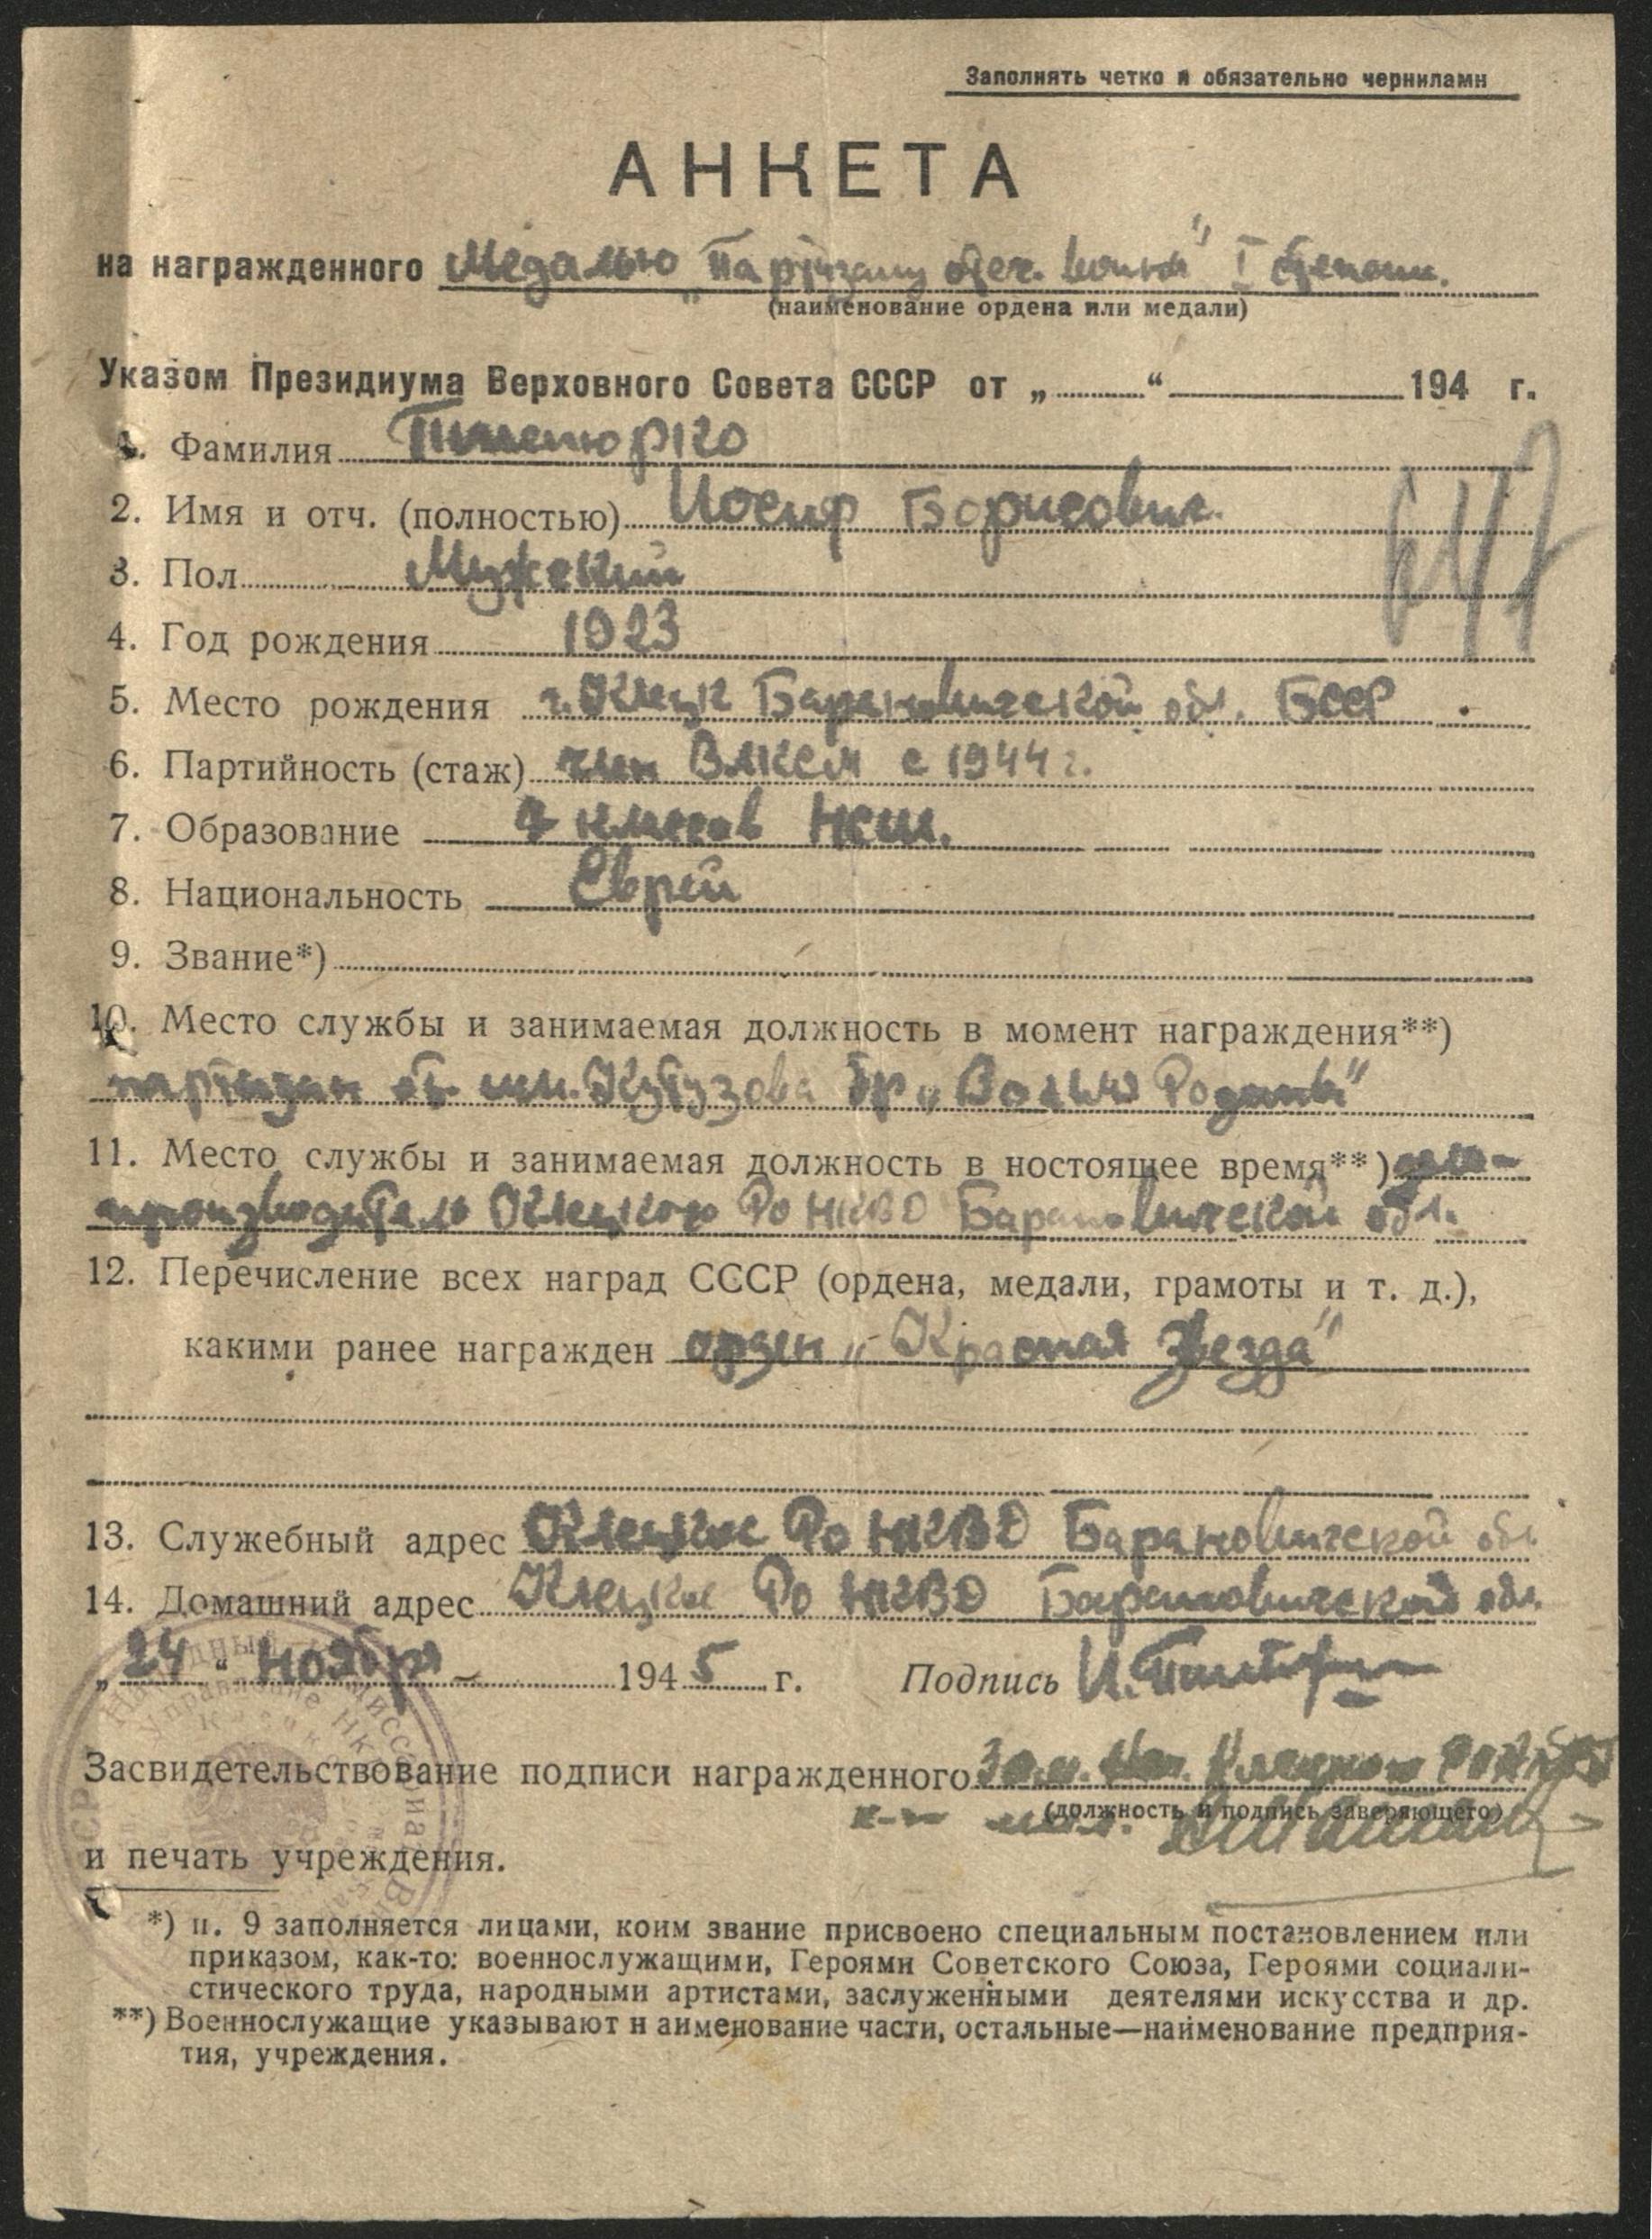 Заполнять четко и обязательно чернилами
АНКЕТА
на награжденного Медалью „Партизану отеч. войны" I степени.
(наименование ордена или медали)
Указом Президиума Верховного Совета СССР от „ “ 194 г.
1. Фамилия
2. Имя и отч. (полностью) Иосиф Борисович.
3. Пол Мужской
4. Год рождения 1923
5. Место рождения г. Клецк Барановичской обл. БССР
6. Партийность (стаж) член ВЛКСМ с 1944 г.
7. Образование 7 классов НСШ.
8. Национальность Еврей
9. Звание*)
10. Место службы и занимаемая должность в момент награждения**)
партизан от. им. Кутузова бр „
11. Место службы и занимаемая должность в ностоящее время**) дело-
производитель Клецкого РО НКВД Барановичской обл.
12. Перечисление всех наград СССР (ордена, медали, грамоты и т. д.),
какими ранее награжден орден „Красная Звезда"
13. Служебный адрес РО НКВД Барановичской обл
14. Домашний адрес РО НКВД Барановичской обл.
„24“ ноября 1945 г. Подпись
647
Засвидетельствование подписи награжденного Зам. Нач. Клецкого РО НКВД
(должность и подпись заверяющего)
и печать учреждения.
*) п. 9 заполняется лицами, коим звание присвоено специальным постановлением или
приказом, как-то: военнослужащими, Героями Советского Союза, Героями социали-
стического труда, народными артистами, заслуженными деятелями искусства и др.
**) Военнослужащие указывают н аименование части, остальные—наименование предприя-
тия, учреждения.